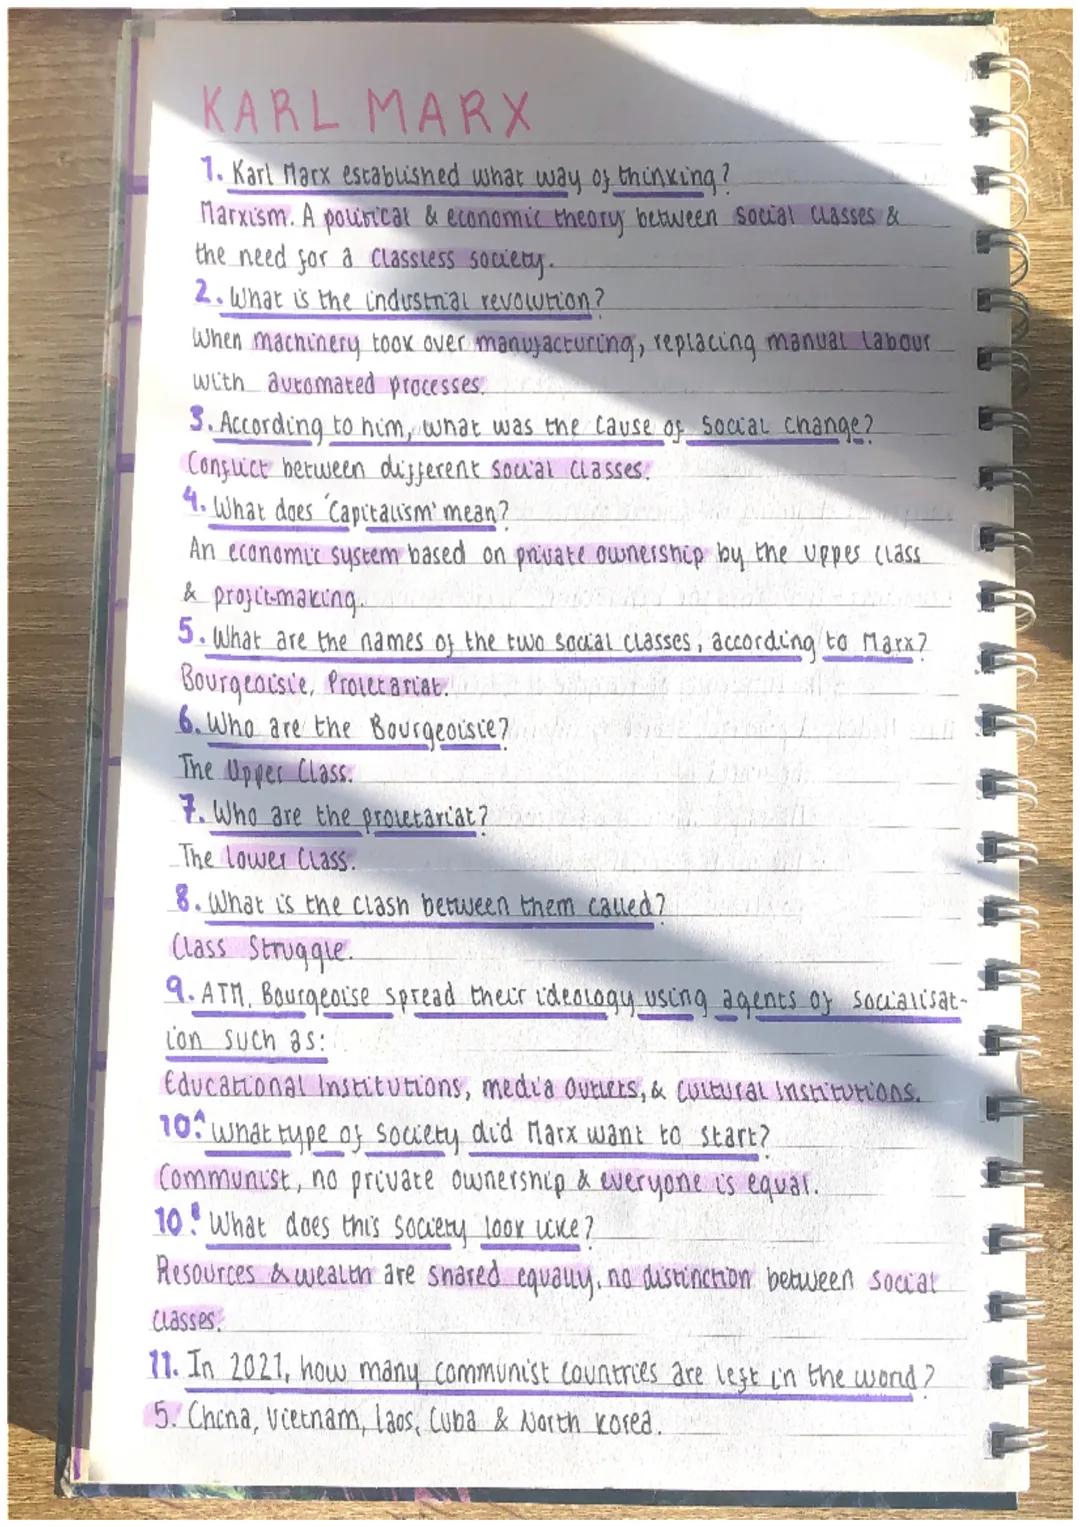 KARL MARX
1. Karl Marx established what way of thinking?
Marxism. A political & economic theory between social classes &
the need for a classless society.
2. What is the industrial revolution?
When machinery took over manufacturing, replacing manual labour
with automated processes.
3. According to him, what was the cause of social change?
Conflict between different social classes.
4. What does 'Capitalism' mean?
An economic system based on private ownership by the upper class
& profit-making.
5. What are the names of the two social classes, according to Marx?
Bourgeoisie, Proletariat.
6. Who are the Bourgeoisie?
The Upper Class.
7. Who are the proletariat?
The Lower Class.
8. What is the clash between them called?
Class Struggle.
9. ATM, Bourgeoise spread their ideology using agents of socialisat-
ion such as:
Educational Institutions, media outlets, & cultural institutions.
10.A What type of society did Marx want to start?
Communist, no private ownership & everyone is equal.
10.B What does this society look like?
Resources & wealth are shared equally, no distinction between social
classes.
11. In 2021, how many communist countries are left in the world?
5. China, Vietnam, Laos, Cuba & North Korea.